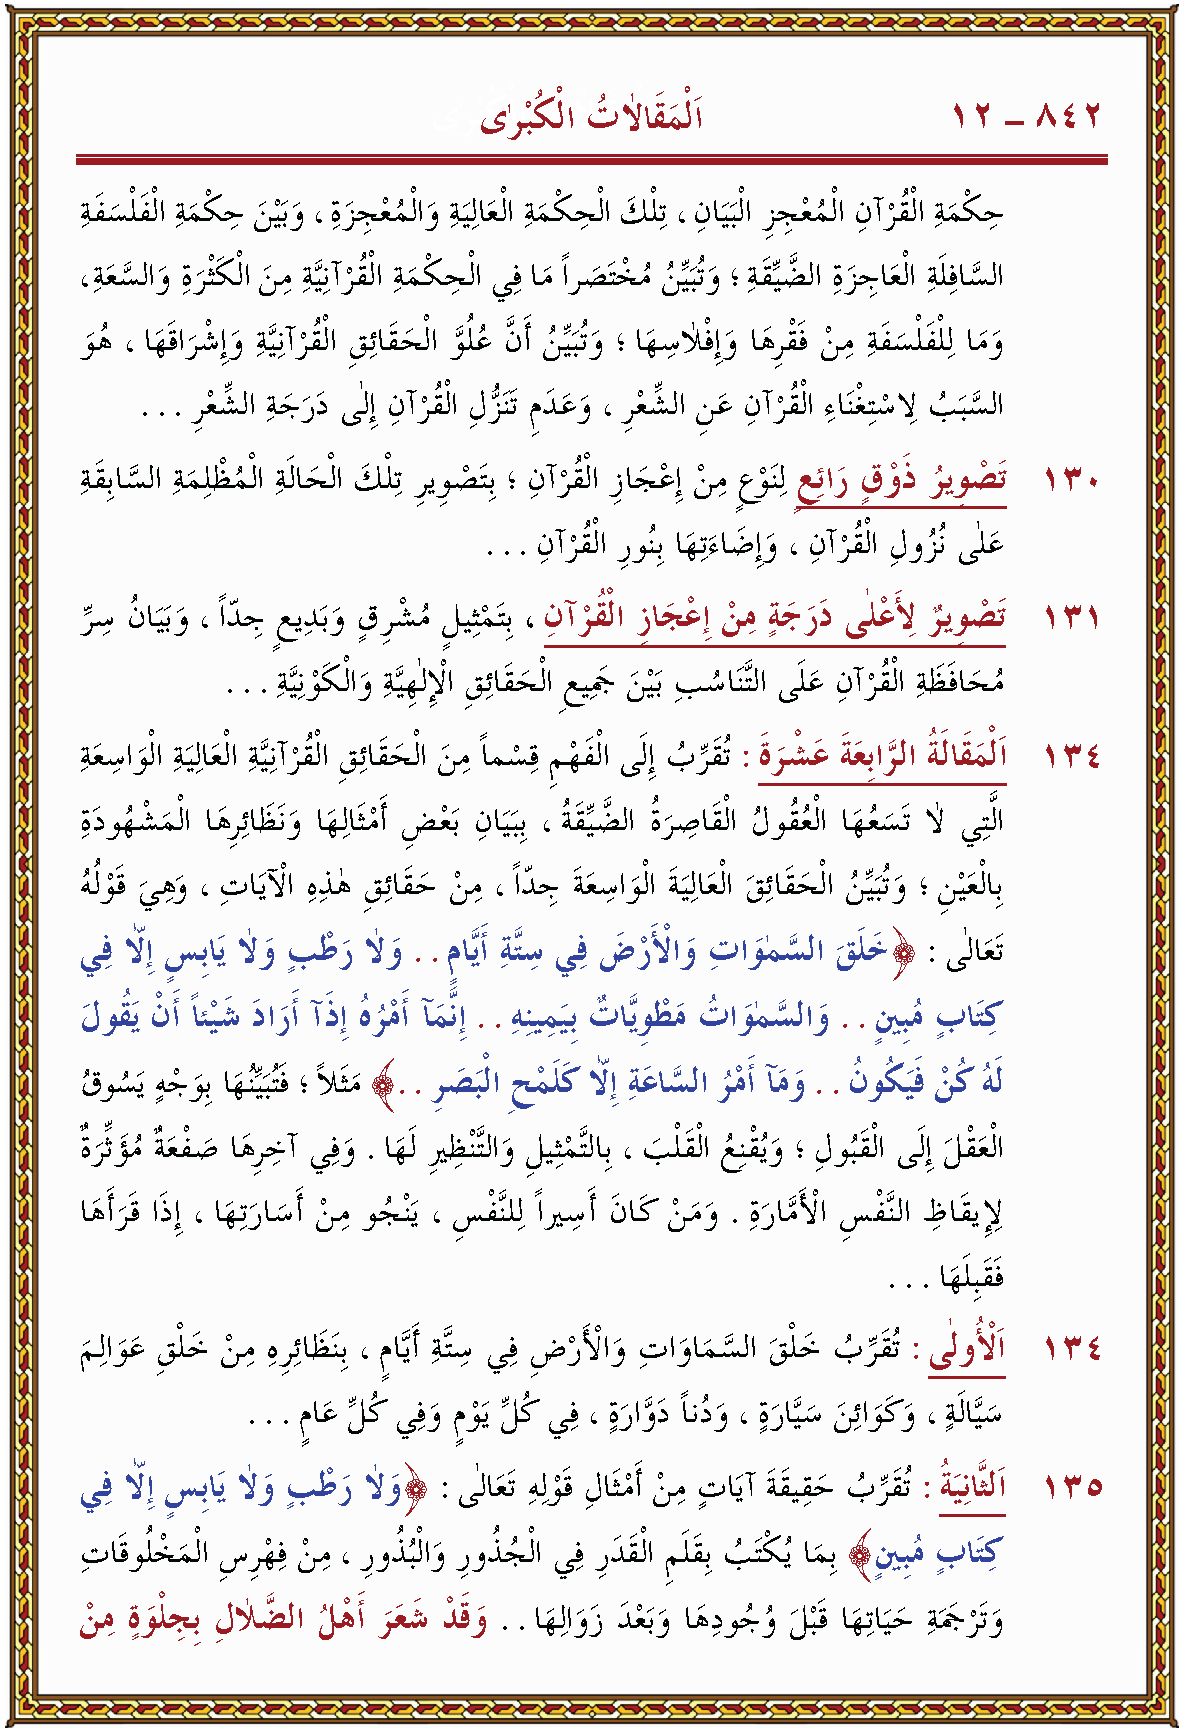 ٨٤٢ – ١٢ اَلْمَقَالَاتُ الْكُبْرٰى
حِكْمَةِ الْقُرْآنِ الْمُعْجِزِ الْبَيَانِ ، تِلْكَ الْحِكْمَةِ الْعَالِيَةِ وَالْمُعْجِزَةِ ، وَبَيْنَ حِكْمَةِ الْفَلْسَفَةِ
السَّافِلَةِ الْعَاجِزَةِ الضَّيِّقَةِ ؛ وَتُبَيِّنُ مُخْتَصَراً مَا فِي الْحِكْمَةِ الْقُرْآنِيَّةِ مِنَ الْكَثْرَةِ وَالسَّعَةِ،
وَمَا لِلْفَلْسَفَةِ مِنْ فَقْرِهَا وَإِفْلَاسِهَا ؛ وَتُبَيِّنُ أَنَّ عُلُوَّ الْحَقَائِقِ الْقُرْآنِيَّةِ وَإِشْرَاقَهَا ، هُوَ
السَّبَبُ لِاسْتِغْنَاءِ الْقُرْآنِ عَنِ الشِّعْرِ ، وَعَدَمِ تَنَزُّلِ الْقُرْآنِ إِلٰى دَرَجَةِ الشِّعْرِ . . .
١٣٠ تَصْوِيرُ ذَوْقٍ رَائِعٍ لِنَوْعٍ مِنْ إِعْجَازِ الْقُرْآنِ ؛ بِتَصْوِيرِ تِلْكَ الْحَالَةِ الْمُظْلِمَةِ السَّابِقَةِ
عَلٰى نُزُولِ الْقُرْآنِ ، وَإِضَاءَتِهَا بِنُورِ الْقُرْآنِ . . .
١٣١ تَصْوِيرٌ لِأَعْلٰى دَرَجَةٍ مِنْ إِعْجَازِ الْقُرْآنِ ، بِتَمْثِيلٍ مُشْرِقٍ وَبَدِيعٍ جِدّاً ، وَبَيَانُ سِرِّ
مُحَافَظَةِ الْقُرْآنِ عَلَى التَّنَاسُبِ بَيْنَ جَمِيعِ الْحَقَائِقِ الْإِلٰهِيَّةِ وَالْكَوْنِيَّةِ . . .
١٣٤ اَلْمَقَالَةُ الرَّابِعَةَ عَشْرَةَ : تُقَرِّبُ إِلَى الْفَهْمِ قِسْماً مِنَ الْحَقَائِقِ الْقُرْآنِيَّةِ الْعَالِيَةِ الْوَاسِعَةِ
الَّتِي لَا تَسَعُهَا الْعُقُولُ الْقَاصِرَةُ الضَّيِّقَةُ ، بِبَيَانِ بَعْضِ أَمْثَالِهَا وَنَظَائِرِهَا الْمَشْهُودَةِ
بِالْعَيْنِ ؛ وَتُبَيِّنُ الْحَقَائِقَ الْعَالِيَةَ الْوَاسِعَةَ جِدّاً ، مِنْ حَقَائِقِ هٰذِهِ الْآيَاتِ ، وَهِيَ قَوْلُهُ
تَعَالٰى : ﴿خَلَقَ السَّمٰوَاتِ وَالْأَرْضَ فِي سِتَّةِ أَيَّامٍ . . وَلَا رَطْبٍ وَلَا يَابِسٍ إِلَّا فِي
كِتَابٍ مُبِينٍ . . وَالسَّمٰوَاتُ مَطْوِيَّاتٌ بِيَمِينِهِ . . إِنَّمَآ أَمْرُهُ إِذَآ أَرَادَ شَيْئاً أَنْ يَقُولَ
لَهُ كُنْ فَيَكُونُ . . وَمَآ أَمْرُ السَّاعَةِ إِلَّا كَلَمْحِ الْبَصَرِ . .﴾ مَثَلاً ؛ فَتُبَيِّنُهَا بِوَجْهٍ يَسُوقُ
الْعَقْلَ إِلَى الْقَبُولِ ؛ وَيُقْنِعُ الْقَلْبَ ، بِالتَّمْثِيلِ وَالتَّنْظِيرِ لَهَا . وَفِي آخِرِهَا صَفْعَةٌ مُؤَثِّرَةٌ
لِإِيقَاظِ النَّفْسِ الْأَمَّارَةِ . وَمَنْ كَانَ أَسِيراً لِلنَّفْسِ ، يَنْجُو مِنْ أَسَارَتِهَا ، إِذَا قَرَأَهَا
فَقَبِلَهَا . . .
١٣٤ اَلْأُولٰى : تُقَرِّبُ خَلْقَ السَّمَاوَاتِ وَالْأَرْضِ فِي سِتَّةِ أَيَّامٍ ، بِنَظَائِرِهِ مِنْ خَلْقِ عَوَالِمَ
سَيَّالَةٍ ، وَكَوَائِنَ سَيَّارَةٍ ، وَدُناً دَوَّارَةٍ ، فِي كُلِّ يَوْمٍ وَفِي كُلِّ عَامٍ . . .
١٣٥ اَلثَّانِيَةُ : تُقَرِّبُ حَقِيقَةَ آيَاتٍ مِنْ أَمْثَالِ قَوْلِهِ تَعَالٰى : ﴿وَلَا رَطْبٍ وَلَا يَابِسٍ إِلَّا فِي
كِتَابٍ مُبِينٍ﴾ بِمَا يُكْتَبُ بِقَلَمِ الْقَدَرِ فِي الْجُذُورِ وَالْبُذُورِ ، مِنْ فِهْرِسِ الْمَخْلُوقَاتِ
وَتَرْجَمَةِ حَيَاتِهَا قَبْلَ وُجُودِهَا وَبَعْدَ زَوَالِهَا . . وَقَدْ شَعَرَ أَهْلُ الضَّلَالِ بِجِلْوَةٍ مِنْ